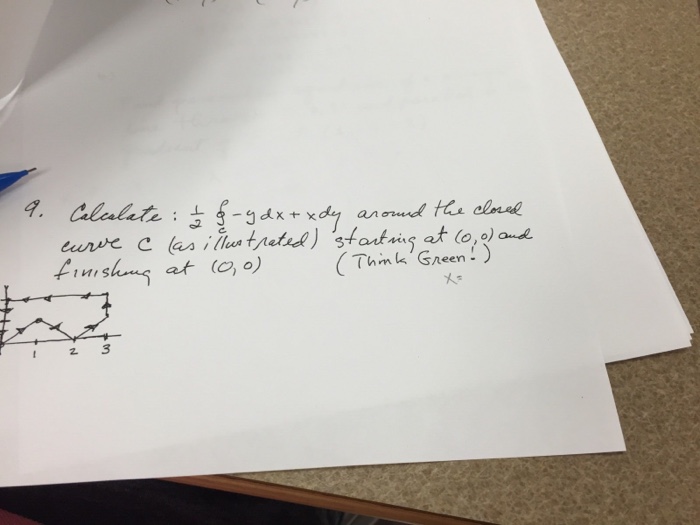 9. Calculate : 1/2 ∮c -ydx + xdy around the closed
curve C (as illustrated) starting at (0,0) and
finishing at (0,0) (Think Green!)
x=
y
1 2 3